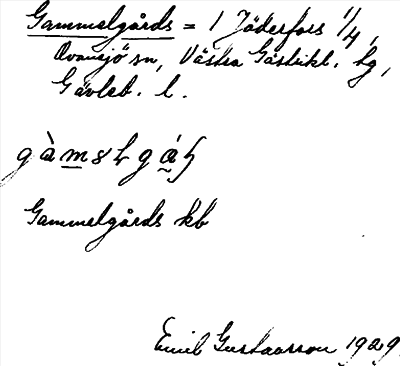 Gammelgårds = 1 Jäderfors 1/4,
Ovansjö sn, Västra Gästrikl. hg,
Gävleb. l.
Gammelgårds kb
Emil Gustavsson 1929